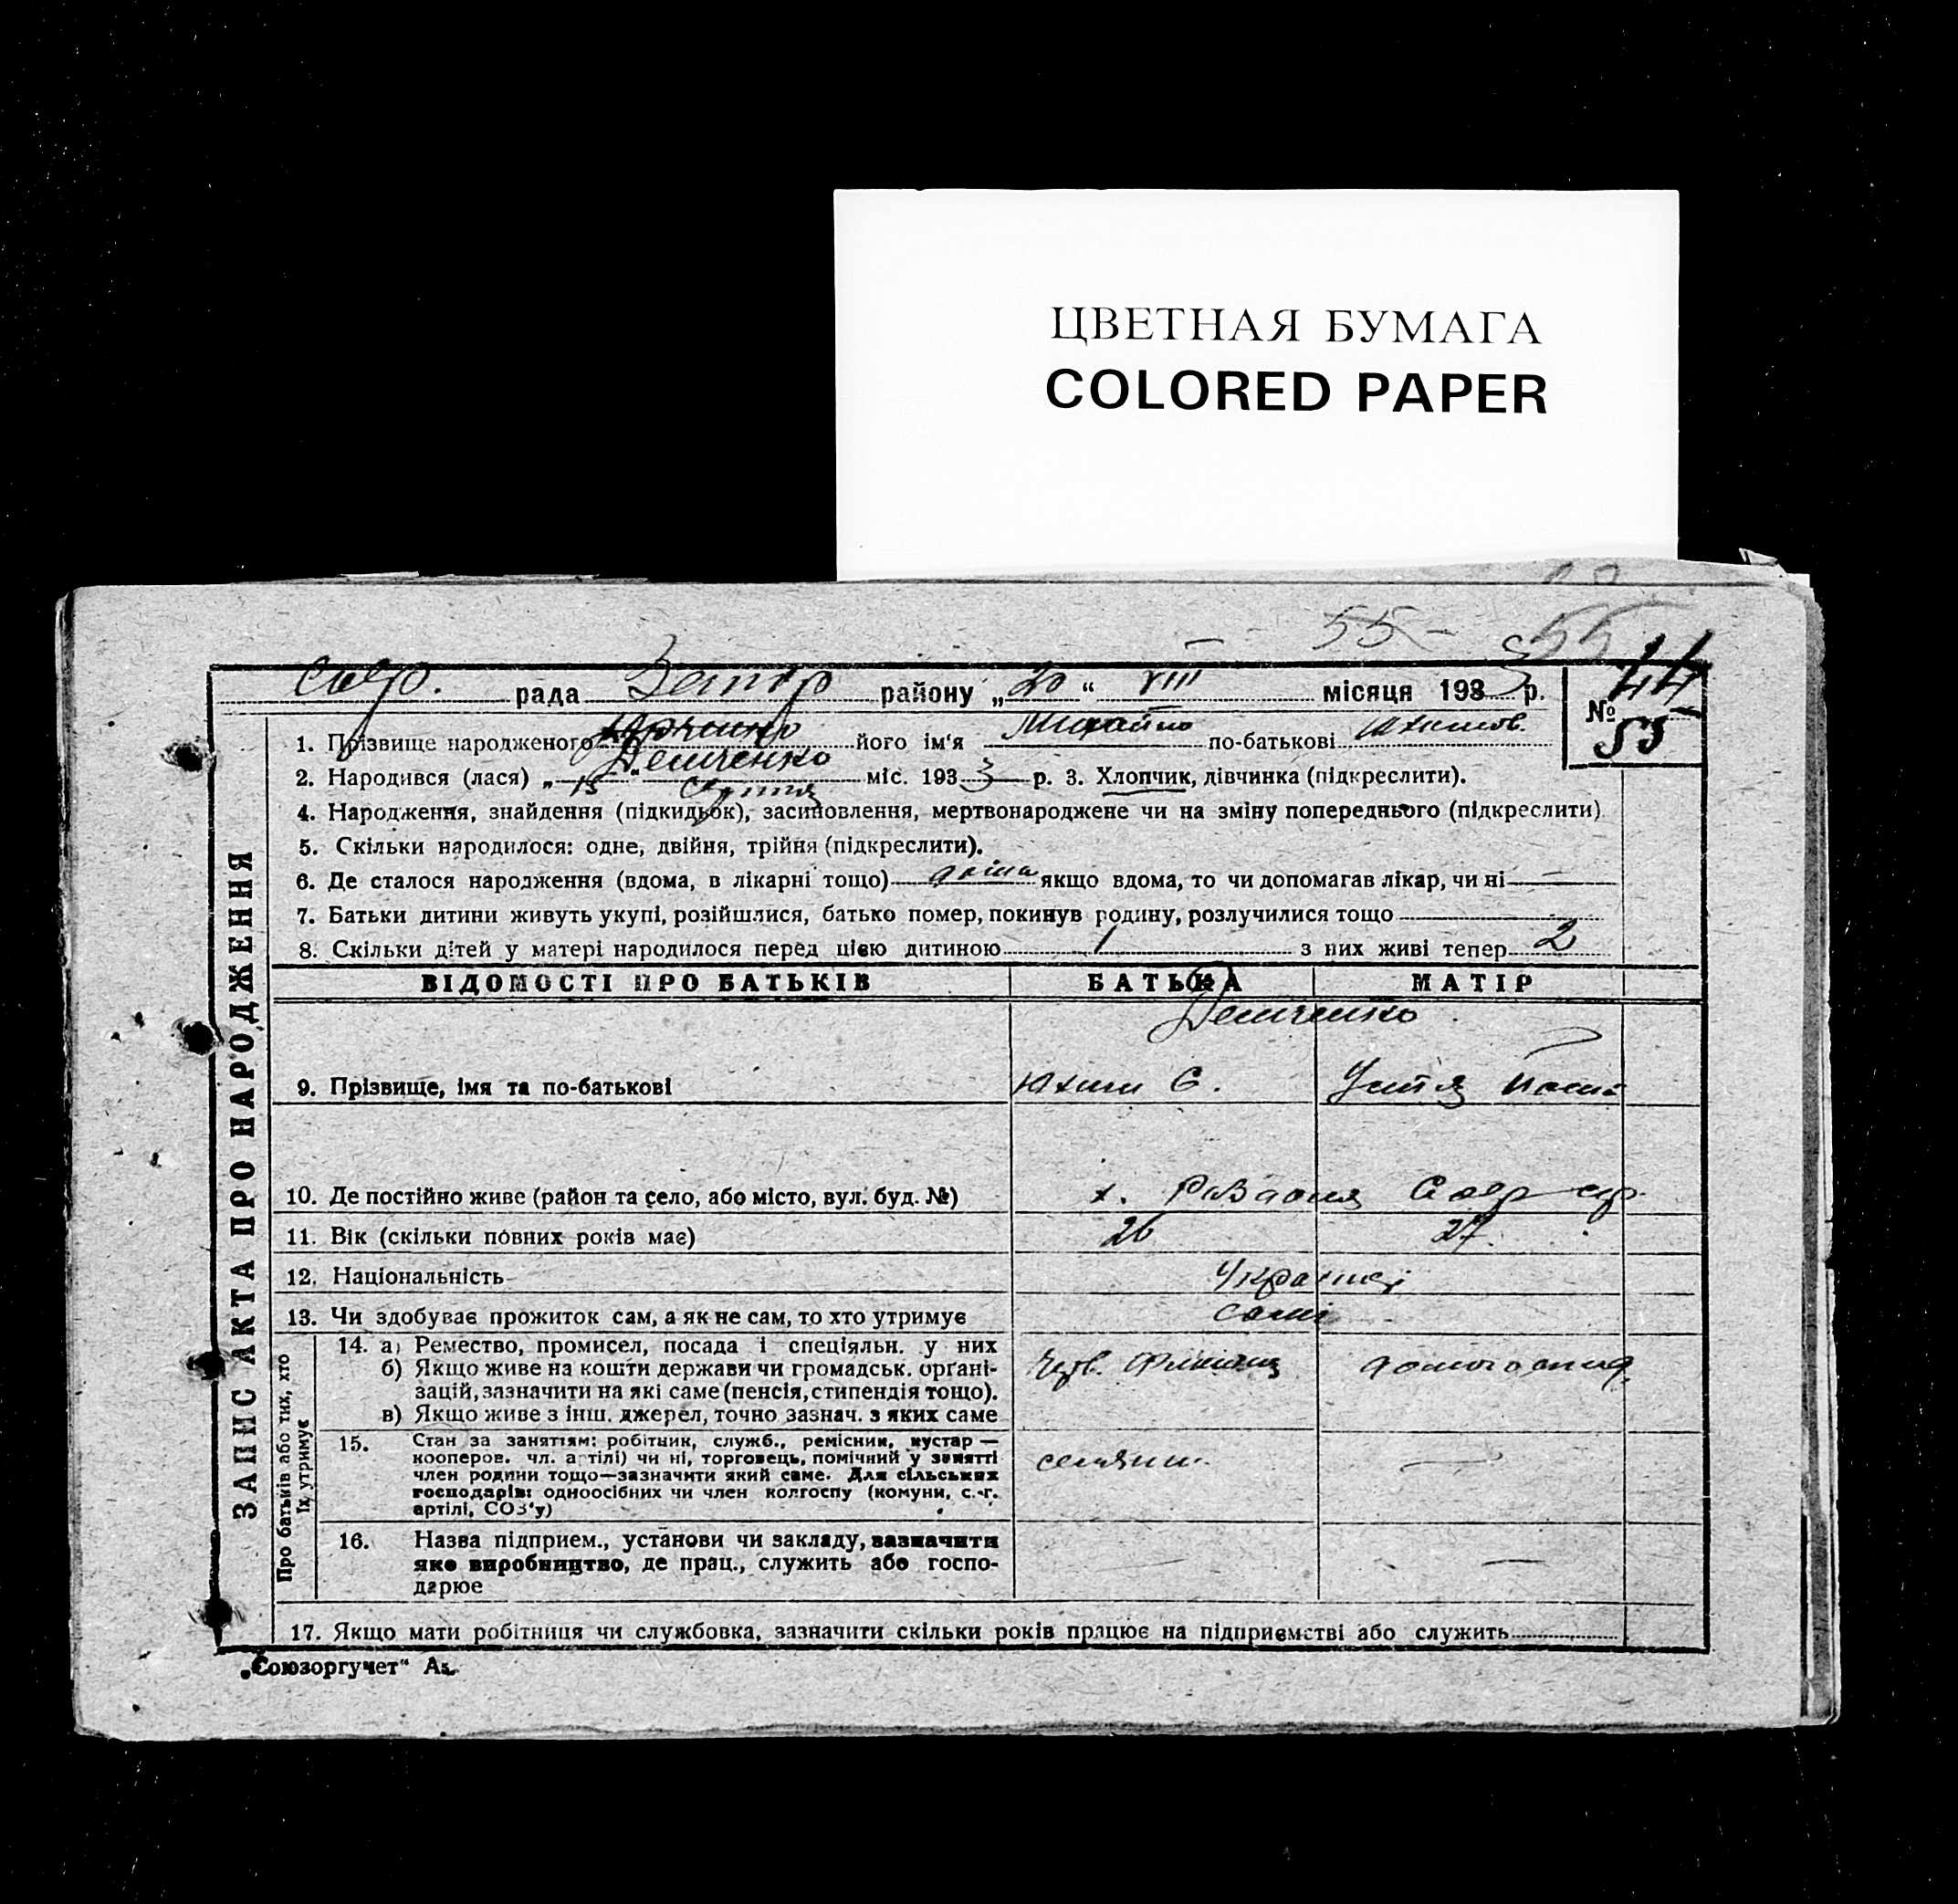 ЦВЕТНАЯ БУМАГА
COLORED PAPER
55 - 55
рада району „20“ VIII місяця 1933 р.
№ 44
55
1. Прізвище народженого його ім'я Михайло по-батькові
Демченко
2. Народився (лася) „15“ міс. 1933 р. 3. Хлопчик, дівчинка (підкреслити).
4. Народження, знайдення (підкидьок), засиновлення, мертвонароджене чи на зміну попереднього (підкреслити)
5. Скільки народилося: одне, двійня, трійня (підкреслити).
6. Де сталося народження (вдома, в лікарні тощо) дома якщо вдома, то чи допомагав лікар, чи ні —
7. Батьки дитини живуть укупі, розійшлися, батько помер, покинув родину, розлучилися тощо
8. Скільки дітей у матері народилося перед цією дитиною 1 з них живі тепер 2
ЗАПИС АКТА ПРО НАРОДЖЕННЯ
ВІДОМОСТІ ПРО БАТЬКІВ БАТЬКА МАТІР
Демченко
9. Прізвище, імя та по-батькові Юхим Є.
10. Де постійно живе (район та село, або місто, вул. буд. №) х.
11. Вік (скільки повних років має) 26 27
12. Національність Українці
13. Чи здобуває прожиток сам, а як не сам, то хто утримує самі
Про батьків або тих, хто їх утримує
14. а) Ремество, промисел, посада і спеціяльн. у них
б) Якщо живе на кошти держави чи громадськ. органі-
зацій, зазначити на які саме (пенсія, стипендія тощо).
в) Якщо живе з інш. джерел, точно зазнач. з яких саме
15. Стан за заняттям: робітник, служб., ремісник, кустар —
кооперов. чл. артілі) чи ні, торговець, помічний у занятті
член родини тощо—зазначити який саме. Для сільських
господарів: одноосібних чи член колгоспу (комуни, с.-г.
артілі, СОЗ'у)
селянин —
16. Назва підприєм., установи чи закладу, зазначити
яке виробництво, де прац., служить або госпо-
дарює
17. Якщо мати робітниця чи службовка, зазначити скільки років працює на підприємстві або служить
„Союзоргучет“